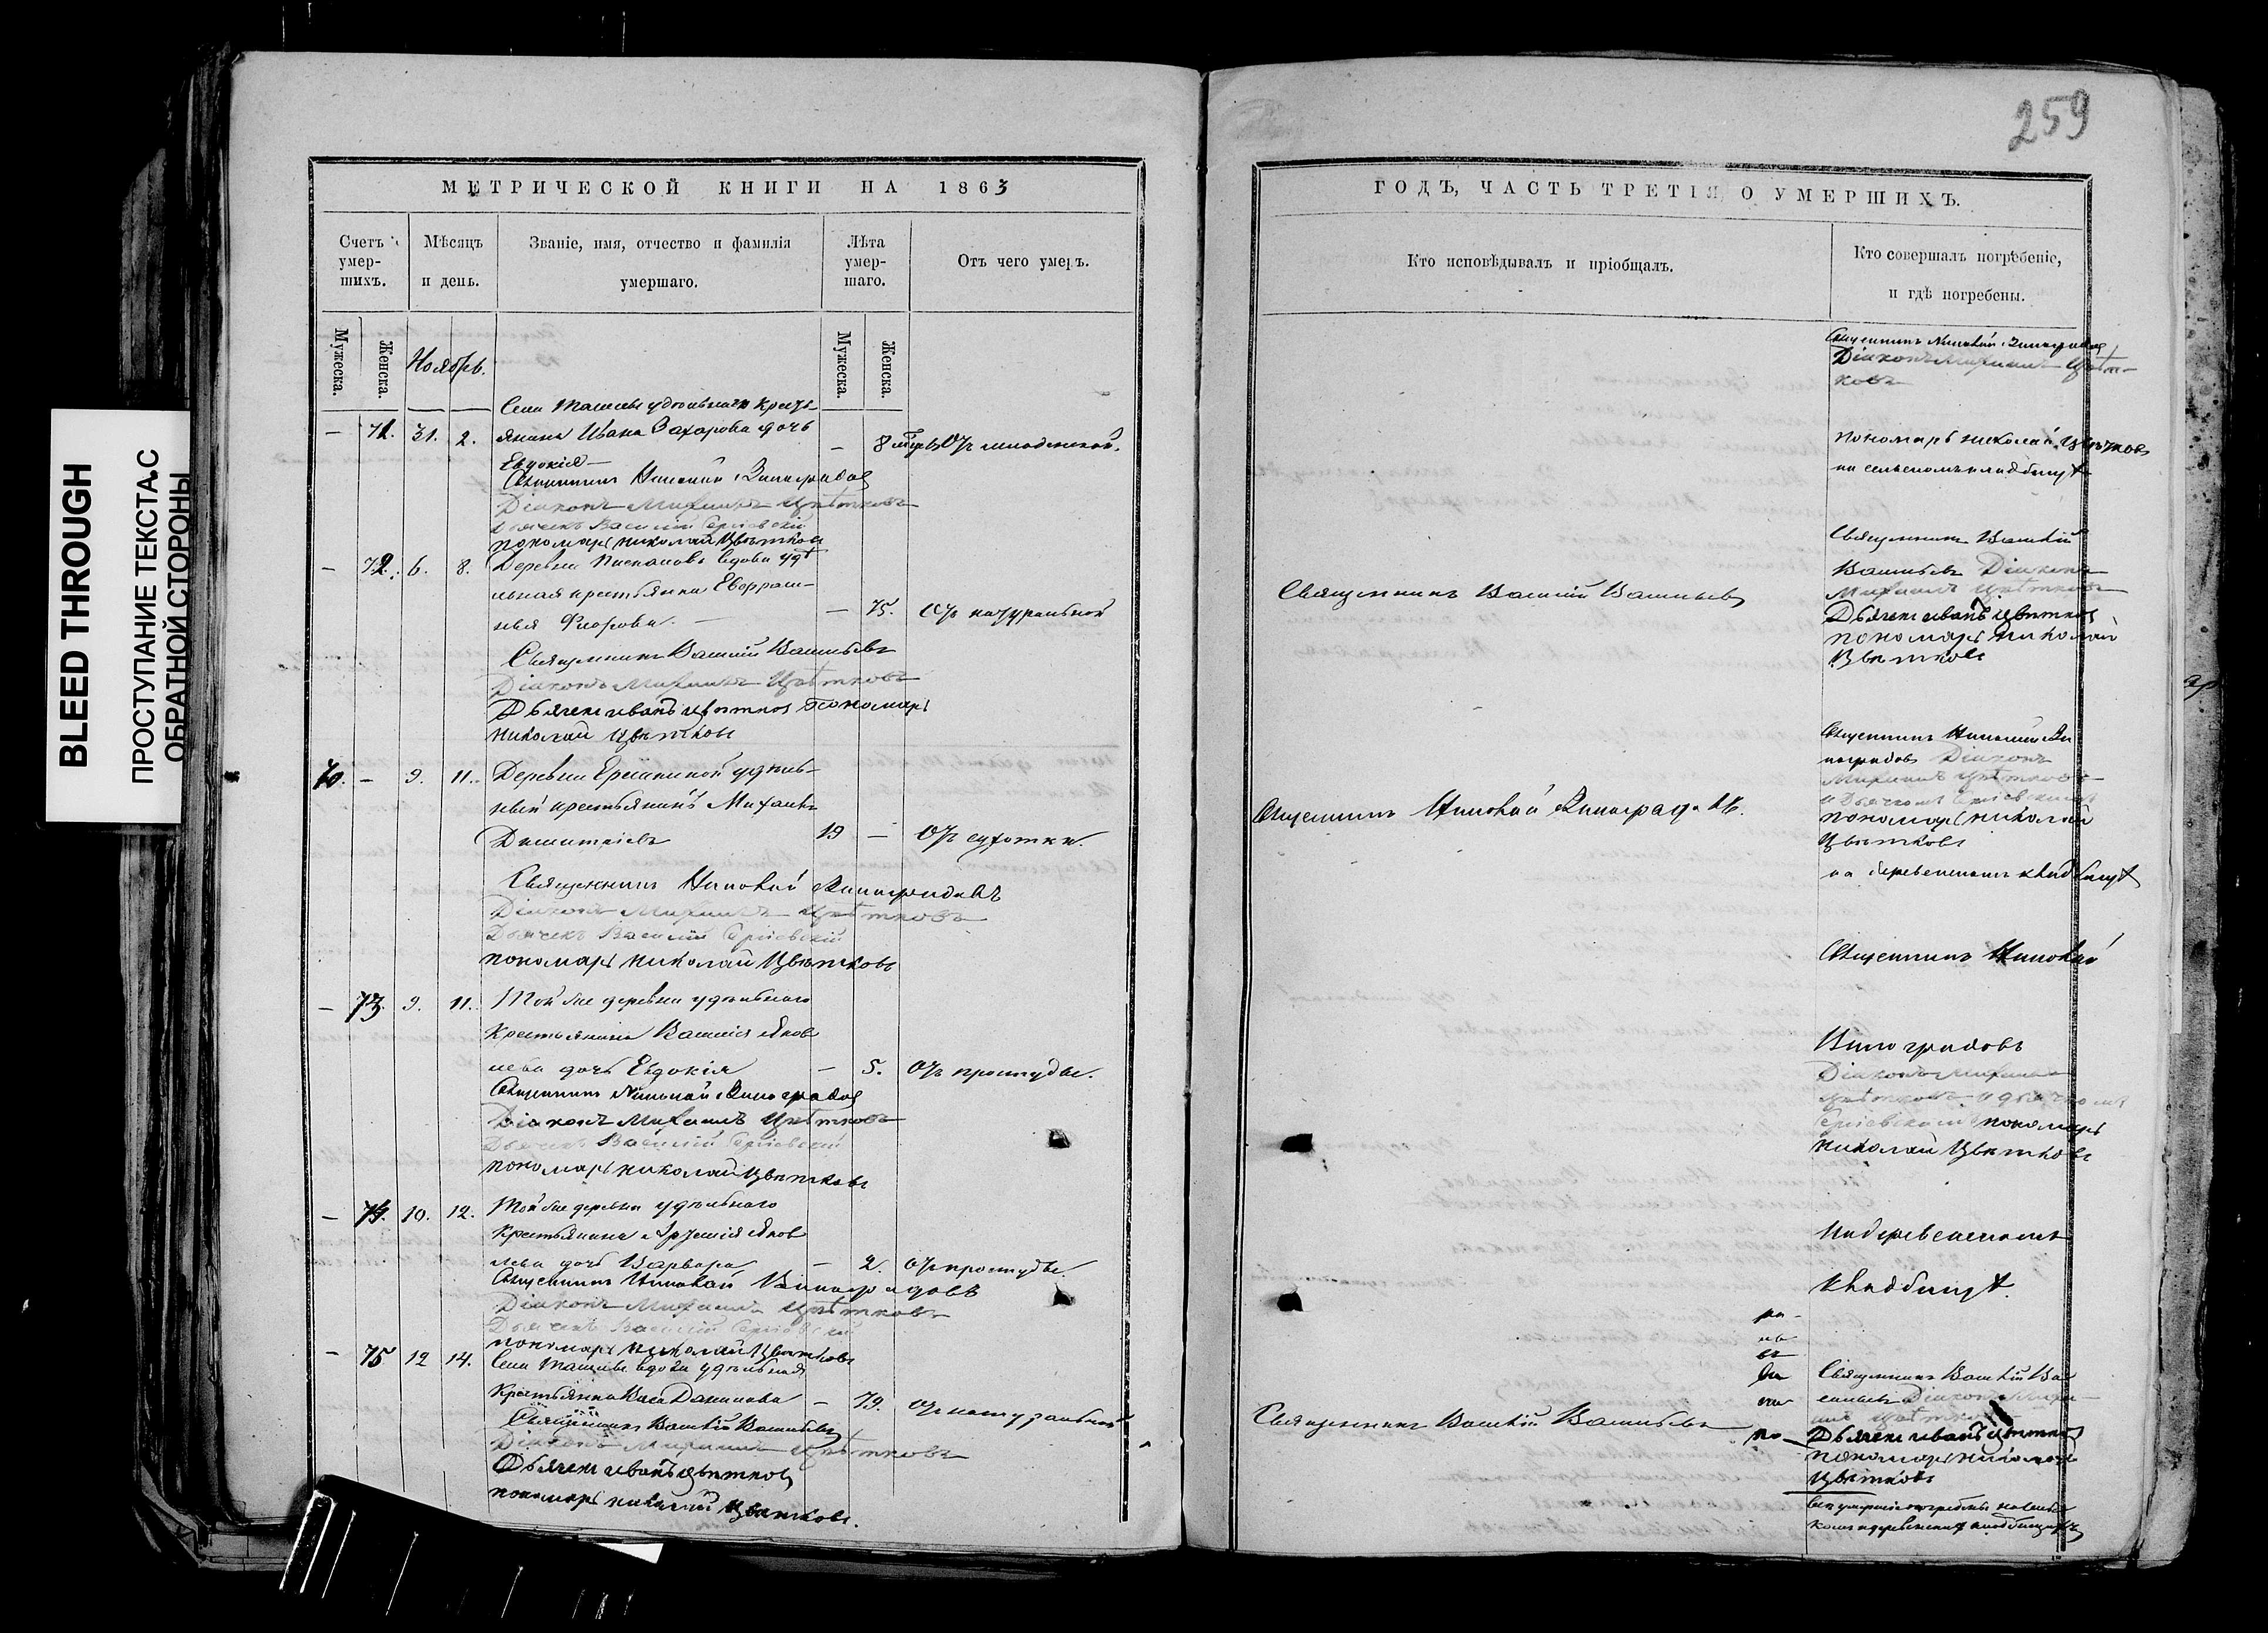 BLEED THROUGH
ПРОСТУПАНИЕ ТЕКСТА С
ОБРАТНОЙ СТОРОНЫ
МЕТРИЧЕСКОЙ КНИГИ НА 1863
Счетъ умер-
шихъ.
Мѣсяцъ
и день.
Званіе, имя, отчество и фамилія
умершаго.
Лѣта
умер-
шаго.
Отъ чего умеръ.
Мужеска.
Женска.
Ноябрь.
Мужеска.
Женска.
Села Ташлы удѣльнаго кресть-
— 71. 31. 2. янина Ивана Захарова дочь — 8 Отъ младенской.
Евдокія
Священникъ Николай Виноградов
Діаконъ Михаилъ Цвѣтковъ
Дьячекъ Василій Сергіевскій
пономарь николай Цвѣтковъ
— 72. 6. 8. Деревни вдова удѣ
льная крестьянка
— 75. Отъ натуральной
Священникъ Василій Васильевъ
Діаконъ Михаилъ Цвѣтковъ
Дьячекъ иванъ цвѣтков пономарь
николай Цвѣтковъ
70. — 9. 11. Деревни удѣль-
ный крестьянинъ Михаилъ
Димитріевъ 19 — Отъ сухотки.
Священникъ Николай Виноградовъ
Діаконъ Михаилъ Цвѣтковъ
Дьячекъ Василій Сергіевскій
пономарь николай Цвѣтковъ
— 73. 9. 11. Той же деревни удѣльнаго
крестьянина Василія Яков
лева дочь Евдокія — 5. Отъ простуды.
Священникъ Николай Виноградов
Діаконъ Михаилъ Цвѣтковъ
Дьячекъ Василій Сергіевскій
пономарь николай Цвѣтковъ
— 74. 10. 12. Той же деревни удѣльнаго
крестьянина Яков
лева дочь Варвара — 2. Отъ простуды.
Священникъ Николай Виноградовъ
Діаконъ Михаилъ Цвѣтковъ
Дьячекъ Василій Сергіевскій
пономарь николай Цвѣтковъ
— 75 12 14. Села Ташлы вдова удѣльная
крестьянка Данилова — 79. Отъ натуральной
Священникъ Василій Васильевъ
Діаконъ Михаилъ Цвѣтковъ
Дьячекъ иванъ цвѣтков
пономарь николай Цвѣтковъ.
259
ГОДЪ, ЧАСТЬ ТРЕТІЯ, О УМЕРШИХЪ.
Кто исповѣдывалъ и пріобщалъ.
Кто совершалъ погребеніе,
и гдѣ погребены.
Священникъ Николай Виноградов
Діаконъ Михаилъ Цвѣт-
ковъ
пономарь николай Цвѣтковъ
на сельскомъ кладбищѣ
Священникъ Василій Васильевъ
Священникъ Василій
Васильевъ Діаконъ
Михаилъ Цвѣтковъ
Дьячекъ иванъ цвѣтков
пономарь николай
Цвѣтковъ
Священникъ Николай Виноградовъ.
Священникъ Николай Ви
ноградовъ Діаконъ
Михаилъ Цвѣтковъ
пономарь николай
Цвѣтковъ
на деревенскомъ кладбищѣ
Священникъ Николай
Виноградовъ
Діаконъ Михаилъ
Цвѣтковъ
пономарь
николай Цвѣтковъ
на деревенскомъ
кладбищѣ.
Священникъ Василій Васильевъ
Священникъ Василій Ва
сильевъ Діаконъ Миха-
илъ Цвѣтковъ
Дьячекъ иванъ цвѣтков
пономарь николай
Цвѣтковъ